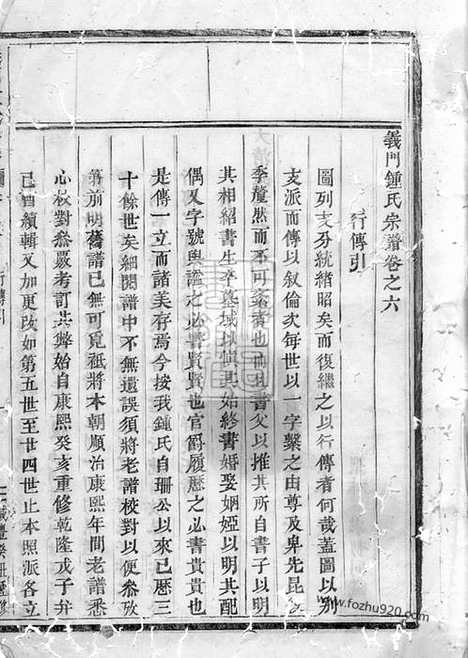 義門鍾氏宗譜卷之六
行傳引
圖列支分統緒昭矣而復繼之以行傳者何哉蓋圖以別
支派而傳以叙倫次每世以一字繫之由尊及卑先昆
季釐然而不可紊者也而且書父以推其所自書子以明
其相紹書生卒墓域以慎其始終書婚娶姻婭以明其配
偶又字號與諡之必書賢賢也官爵履歷之必書貴貴也
是傳一立而諸美存焉今按我鍾氏自珊公以來已歷三
十餘世矣細閱譜中不無遺誤須將老譜校對以便叅攷
第前明舊譜已無可覓祗將本朝順治康熙年間老譜悉
心校對叅嚴考訂共斃始自康熙癸亥重修乾隆戊子并
己酉續輯又加更改如第五世至廿四世止本照派各立
行傳引
www.fozhu920.com